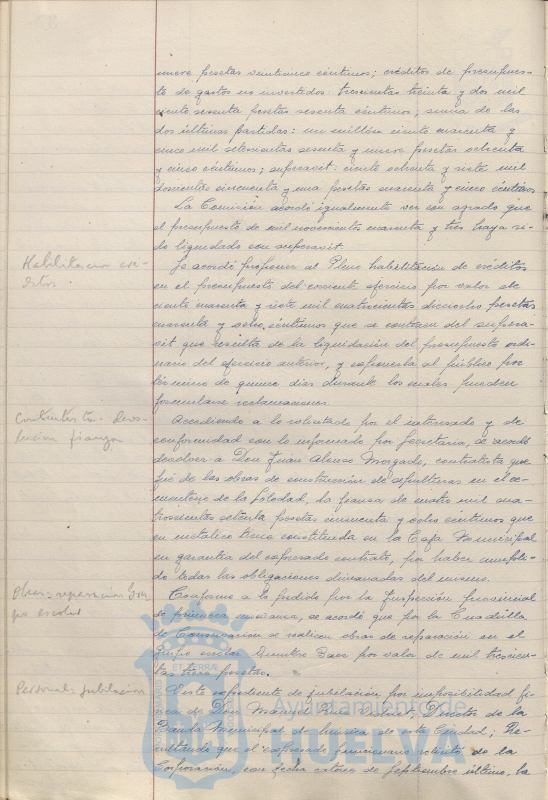 nueve pesetas veinticinco céntimos; créditos de presupues-
to de gastos no invertidos: trescientas treinta y dos mil
ciento sesenta pesetas sesenta céntimos; suma de las
dos últimas partidas: un millón ciento cuarenta y
cinco mil setecientas sesenta y nueve pesetas ochenta
y cinco céntimos; superavit: ciento ochenta y siete mil
doscientas cincuenta y una pesetas cuarenta y cinco céntimos.
La Comisión acordó igualmente ver con agrado que
el presupuesto de mil novecientos cuarenta y tres haya si-
do liquidado con superavit.
Habilitación cré-
ditos.
Se acordó proponer al Pleno habilitación de créditos
en el presupuesto del corriente ejercicio por valor de
ciento cuarenta y siete mil cuatrocientas dieciocho pesetas
cuarenta y ocho céntimos que se contraen del supera-
vit que resulta de la liquidación del presupuesto ordi-
nario del ejercicio anterior, y exponerla al público por
término de quince días durante los cuales pueden
formularse reclamaciones.
Contratista. Devo-
lución fianza
Accediendo a lo solicitado por el interesado y de
conformidad con lo informado por Secretaría, se acordó
devolver a Don Juan Alonso Morgado, contratista que
fué de las obras de construcción de sepulturas en el ce-
menterio de la Soledad, la fianza de cuatro mil cua-
trocientas setenta pesetas cincuenta y ocho céntimos que
en metálico tiene constituida en la Caja Municipal
en garantía del expresado contrato, por haber cumpli-
do todas las obligaciones dimanadas del mismo.
Obras: reparación Gru-
po escolar
Conforme a lo pedido por la Inspección provincial
de primera enseñanza, se acordó que por la Cuadrilla
de Conservación se realicen obras de reparación en el
Grupo escolar por valor de mil trescien-
tas trece pesetas.
Personal: jubilación
Visto expediente de jubilación por imposibilidad fí-
sica de Don Manuel, Director de la
Banda Municipal de Música de esta Ciudad; Re-
sultando que el expresado funcionario solicitó de la
Corporación, con fecha catorce de Septiembre último, la
Ayuntamiento de
HUELVA